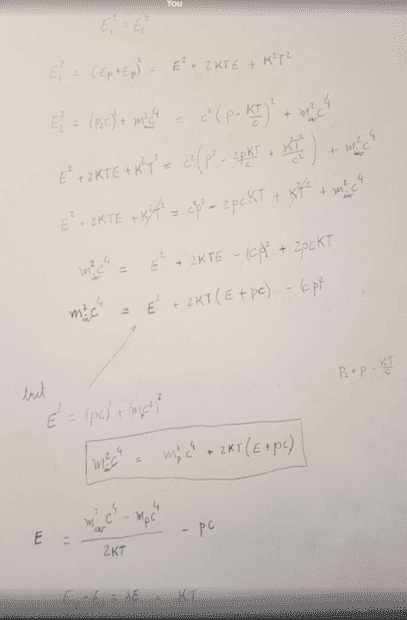 You
E₁² = E₂²
E₁² = (Eₚ + Eₚ)² = E² + 2KTE + K²T²
E₂² = (p₂c)² + m²ᵢₙᵥc⁴ = c²(p - KT/c)² + m²ᵢₙᵥc⁴
E² + 2KTE + K²T² = c²(p² - 2pKT/c + KT²/c²) + m²ᵢₙᵥc⁴
E² + 2KTE + K²T² = c²p² - 2pcKT + K²T² + m²ᵢₙᵥc⁴
m²ᵢₙᵥc⁴ = E² + 2KTE - (cp)² + 2pcKT
m²ᵢₙᵥc⁴ = E² + 2KT(E + pc) - (cp)²
p₂ = p - KT/c
but
E² = (pc)² + (mₚc²)²
m²ᵢₙᵥc⁴ = m²ₚc⁴ + 2KT(E + pc)
E = (m²ᵢₙᵥc⁴ - mₚc⁴)/2KT - pc